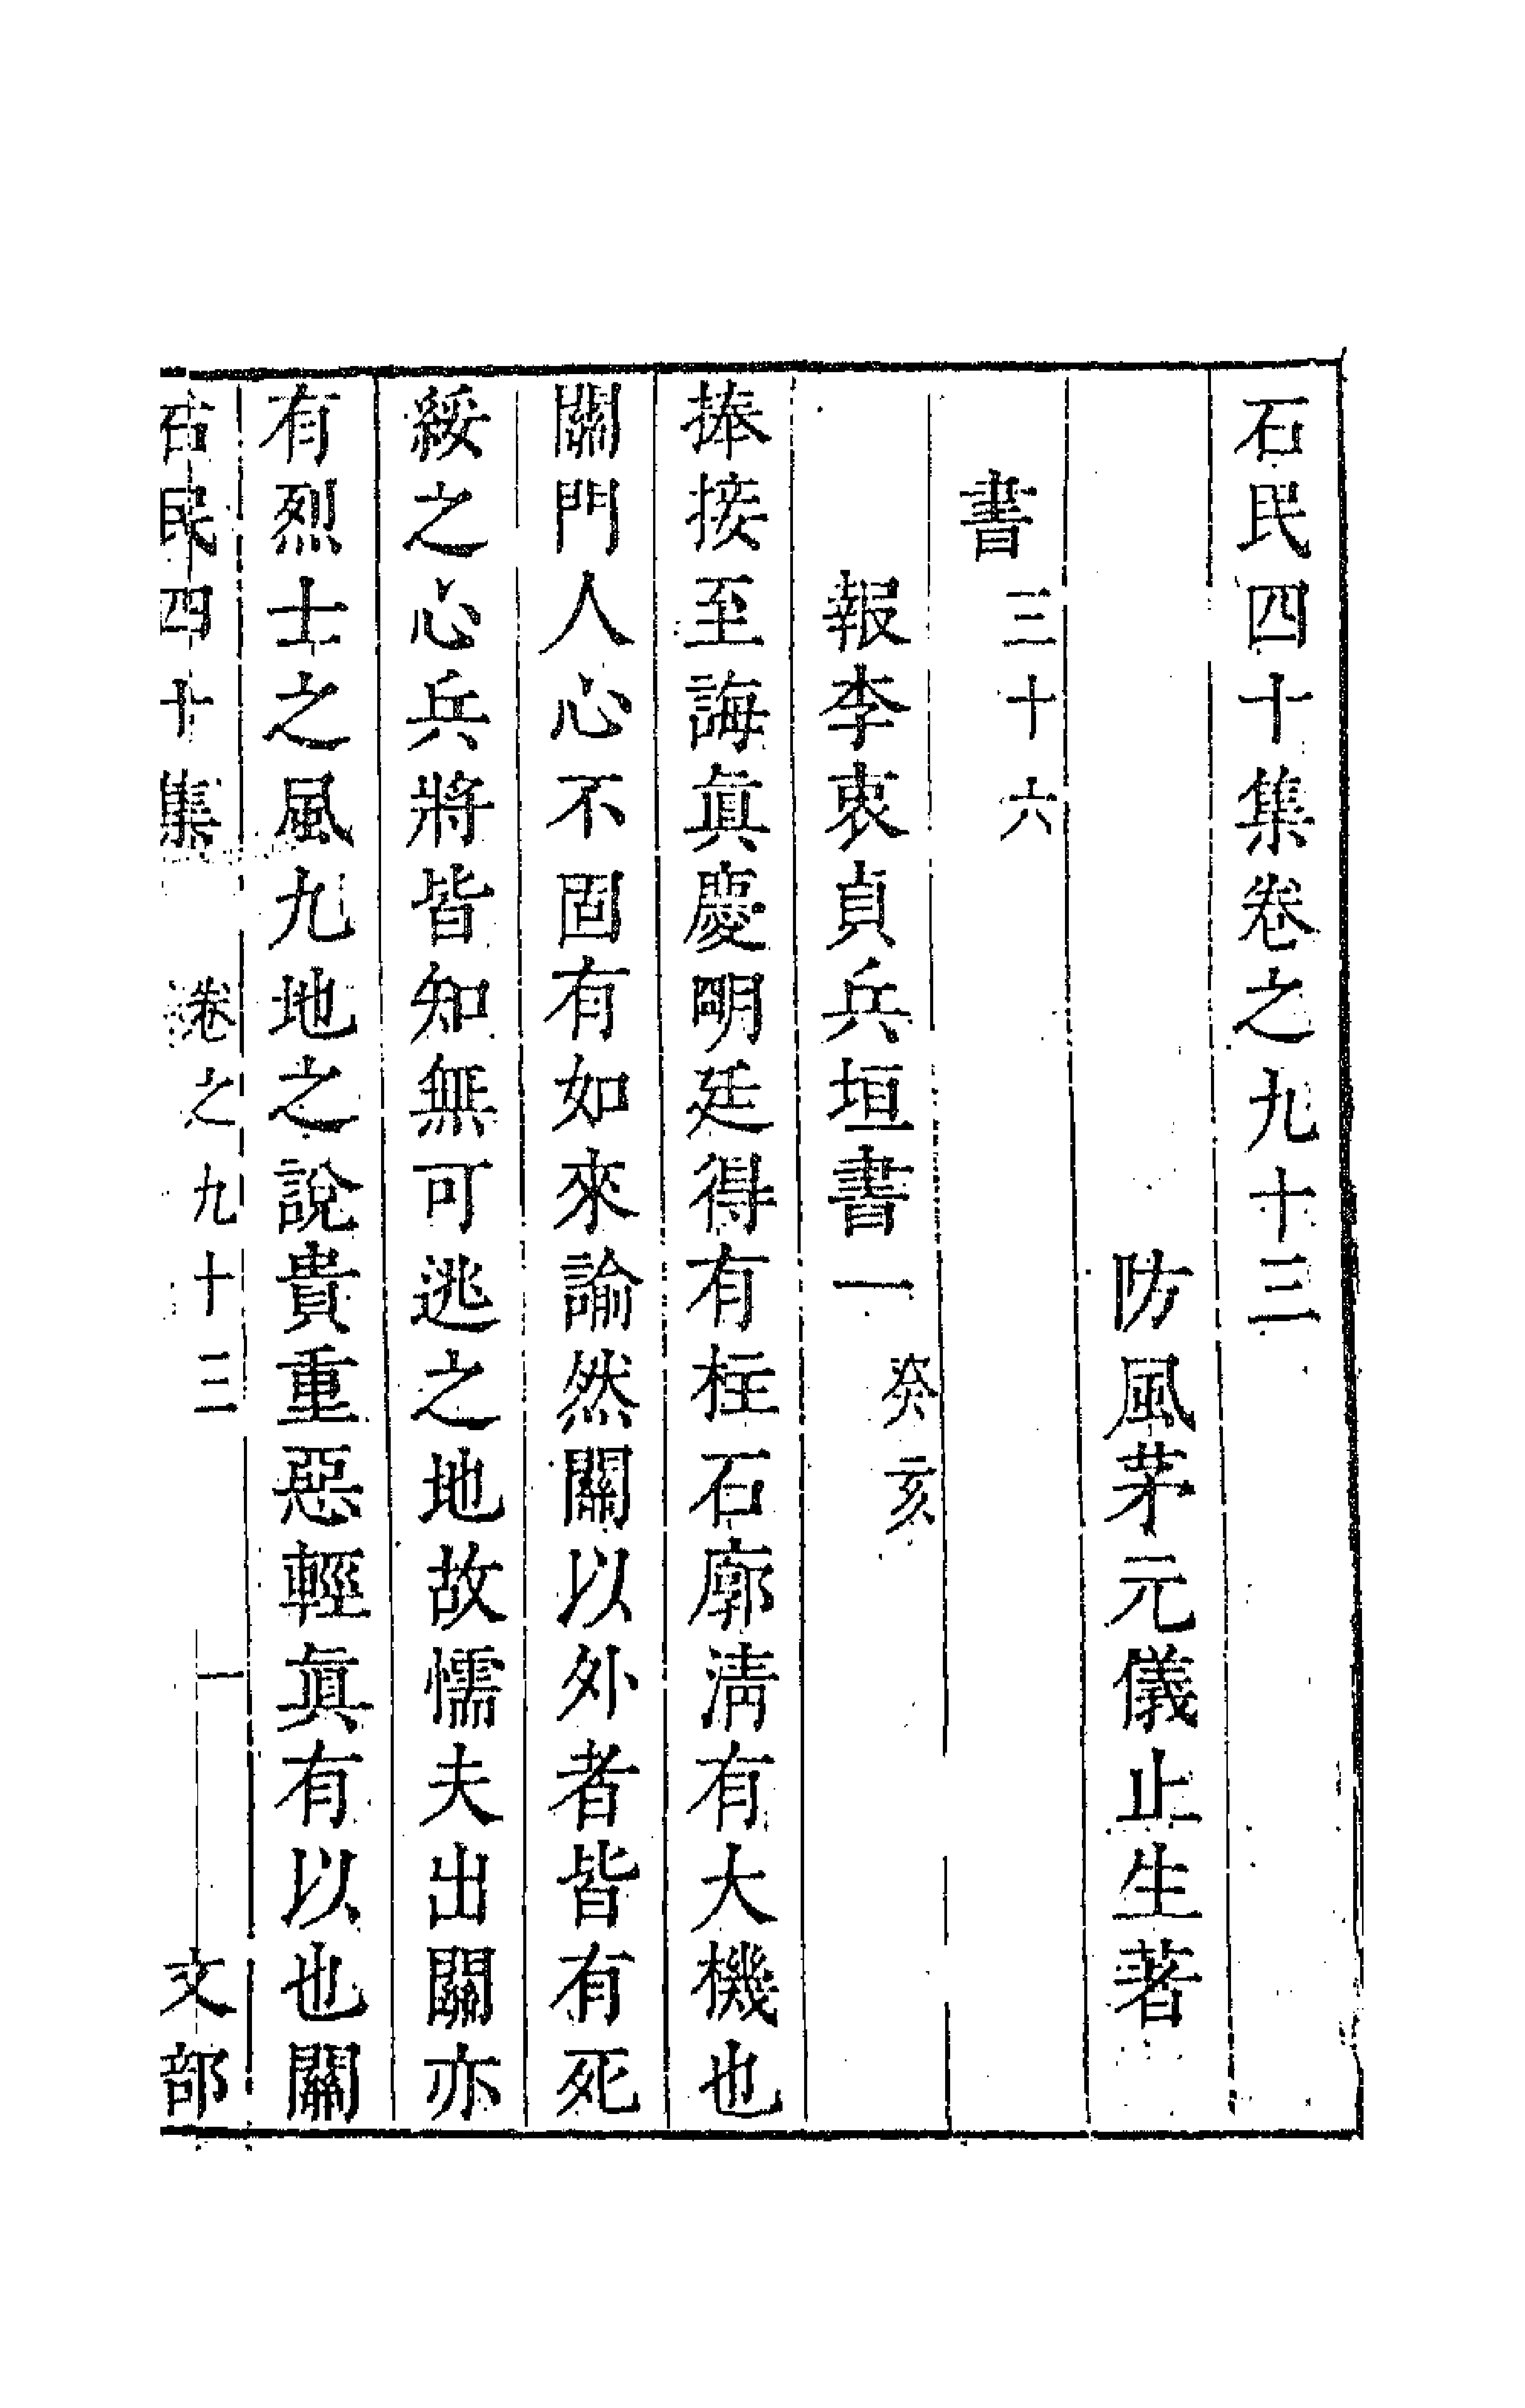 石民四十集卷之九十三
防風茅元儀止生著
書三十六
報李衷貞兵垣書一癸亥
捧接至誨眞慶明廷得有柱石廓淸有大機也
關門人心不固有如來諭然關以外者皆有死
綏之心兵將皆知無可逃之地故懦夫出關亦
有烈士之風九地之說貴重惡輕眞有以也關
石民四十集 卷之九十三 一 文部